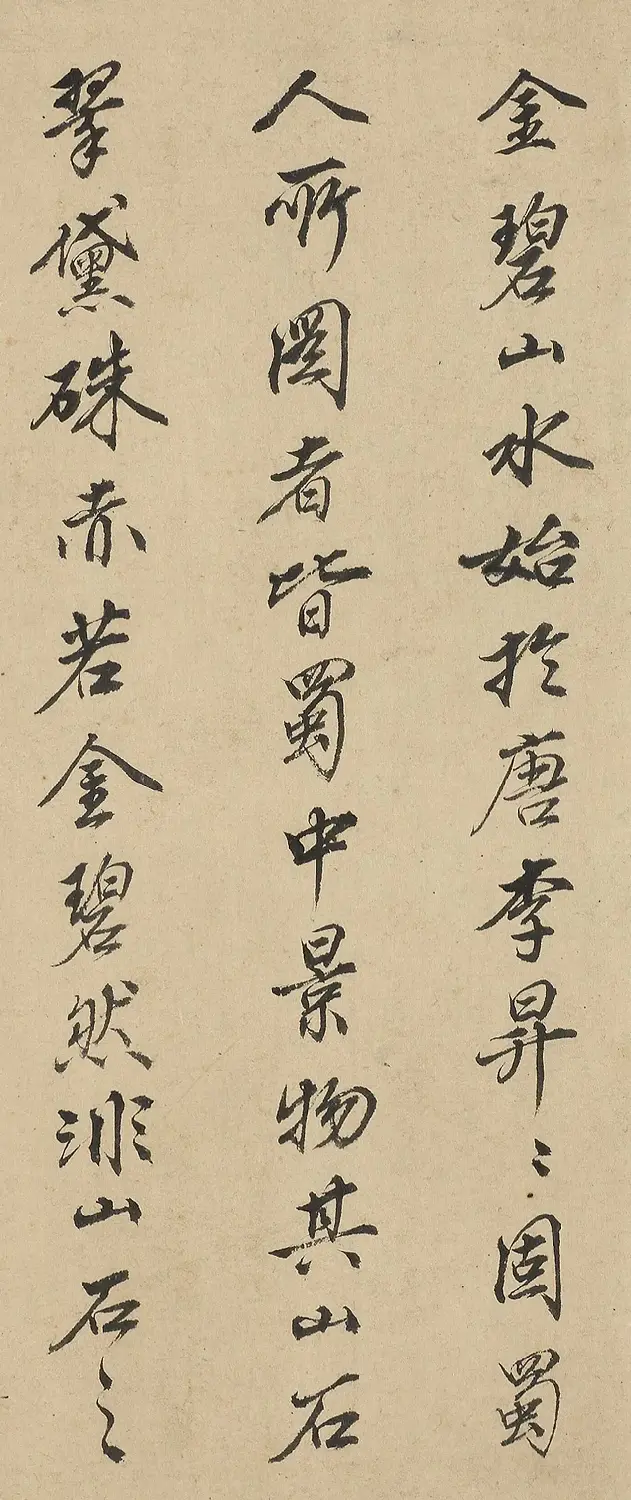 金碧山水始於唐李昇〻固蜀
人所圖者皆蜀中景物其山石
翠黛硃赤若金碧然非山石之